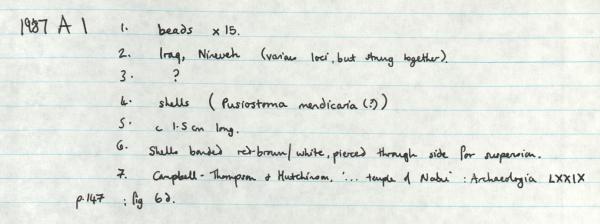 1937 A 1 1. beads x 15.
2. Iraq, Nineveh (various loci, but strung together).
3. ?
4. shells (Pusiostoma mendicaria (?))
5. c 1.5 cm long.
6. Shells banded red-brown/white, pierced through side for suspension.
7. Campbell-Thompson & Hutchinson, '... temple of Nabu' : Archaeologia LXXIX
p.147 ; fig 62.